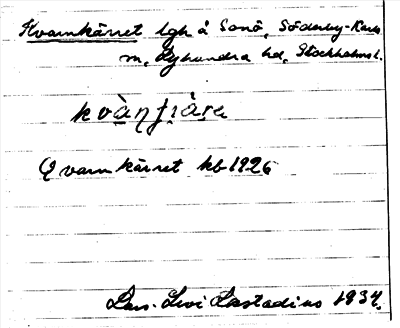 Kvarnkärret lgh å Sonö, Söderby-Karls
sn, Lyhundra hd, Stockholms l.
Qvarnkärret kb 1926
Lars-Levi Læstadius 1934